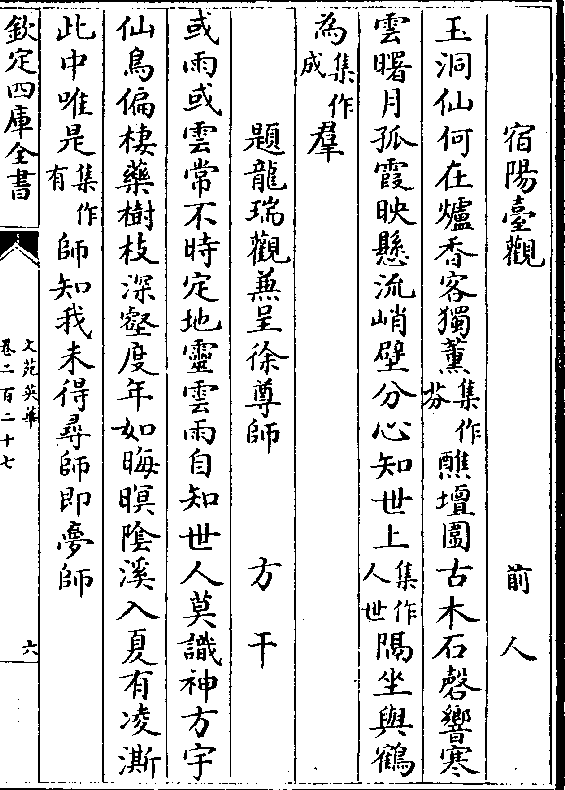 宿陽臺觀　前人
玉洞仙何在爐香客獨薰集作芬醮壇圓古木石磬響寒
雲曙月孤霞映懸流峭壁分心知世上集作人世隔坐與鶴
為集作成羣
題龍瑞觀兼呈徐尊師　方干
或雨或雲常不時定地靈雲雨自知世人莫識神方字
仙鳥偏棲藥樹枝深壑度年如晦暝陰溪入夏有凌澌
此中唯是集作有師知我未得尋師即夢師
欽定四庫全書
文苑英華
卷二百二十七
六